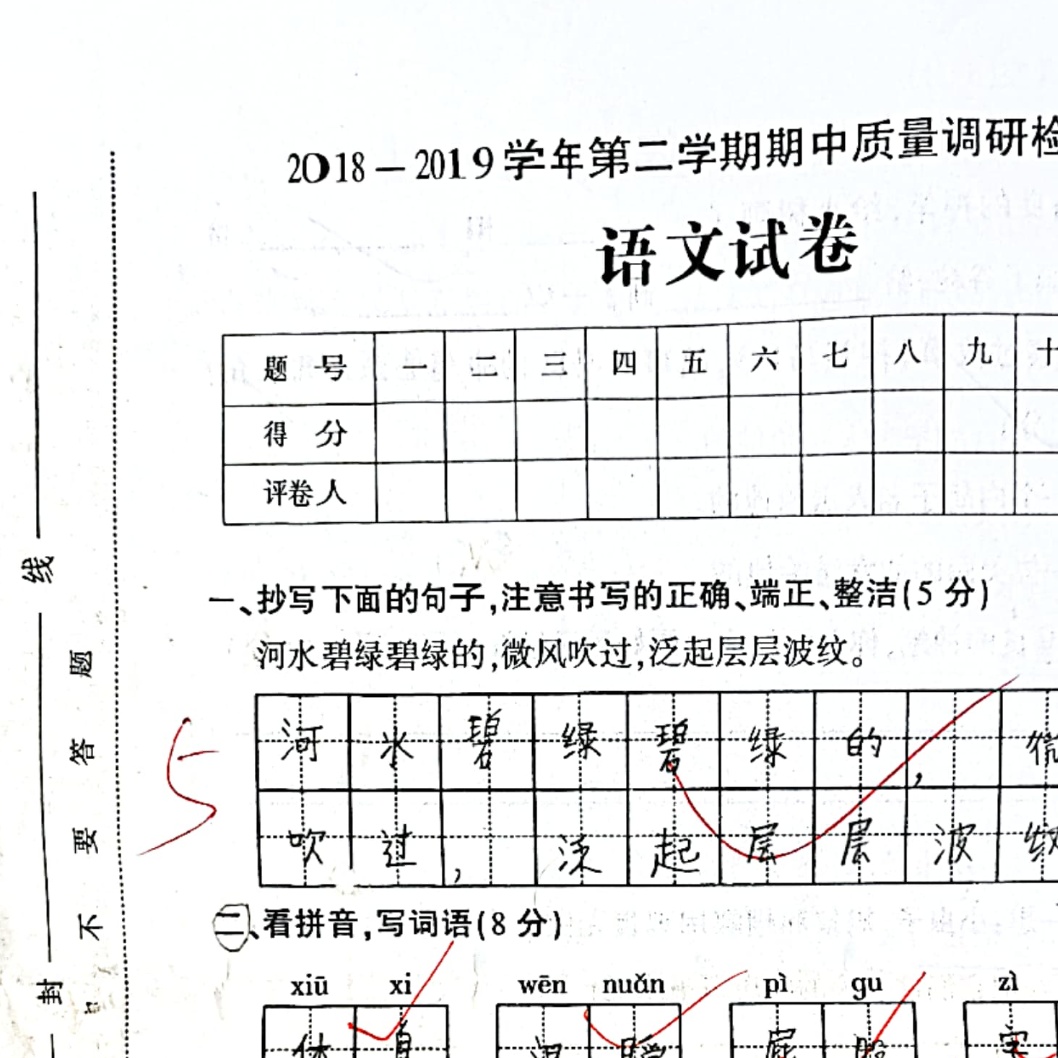 2018－2019学年第二学期期中质量调研检
语文试卷
题 号 一 二 三 四 五 六 七 八 九 十
得 分
评卷人
一、抄写下面的句子,注意书写的正确、端正、整洁(5分)
河水碧绿碧绿的,微风吹过,泛起层层波纹。
河水碧绿碧绿的,微
吹过,泛起层层波纹
5
二、看拼音,写词语(8分)
xiū xi wēn nuǎn pì gu zì
休息 温暖 屁股
线
封
题
答
要
不